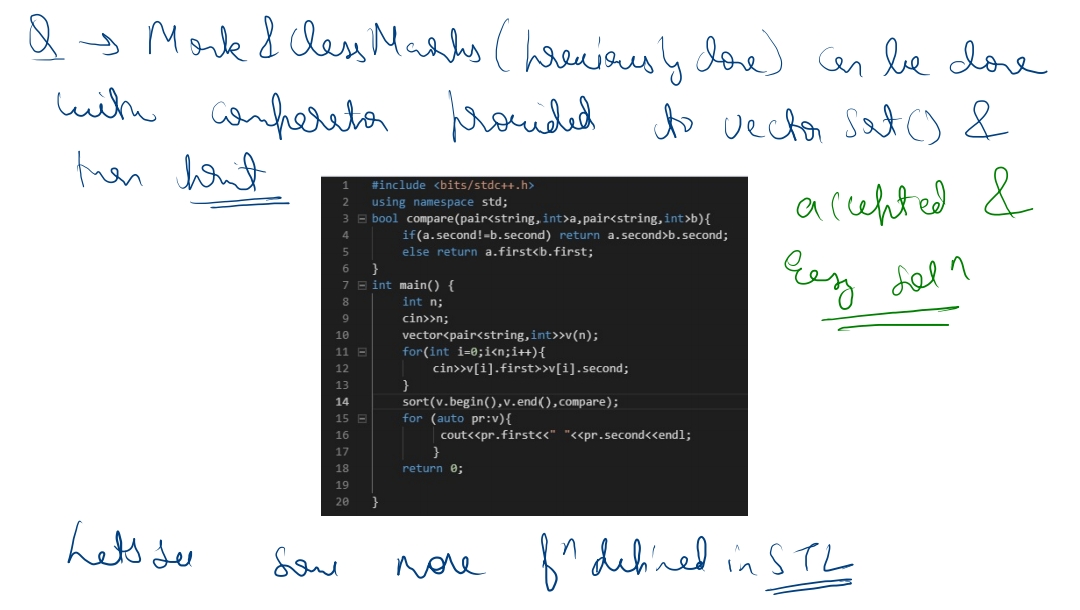 Q → Monk & Class Marks (previously done) can be done
with comparator provided to vector sort() &
then print
accepted &
Easy solⁿ
1 #include <bits/stdc++.h>
2 using namespace std;
3 bool compare(pair<string,int>a,pair<string,int>b){
4 if(a.second!=b.second) return a.second>b.second;
5 else return a.first<b.first;
6 }
7 int main() {
8 int n;
9 cin>>n;
10 vector<pair<string,int>>v(n);
11 for(int i=0;i<n;i++){
12 cin>>v[i].first>>v[i].second;
13 }
14 sort(v.begin(),v.end(),compare);
15 for (auto pr:v){
16 cout<<pr.first<<" "<<pr.second<<endl;
17 }
18 return 0;
19
20 }
Lets see some more fⁿ defined in STL